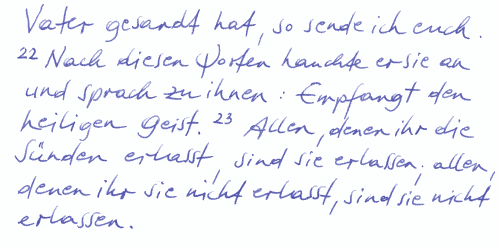 Vater gesandt hat, so sende ich euch.
22 Nach diesen Worten hauchte er sie an
und sprach zu ihnen: Empfangt den
heiligen Geist. 23 Allen, denen ihr die
Sünden erlasst, sind sie erlassen; allen,
denen ihr sie nicht erlasst, sind sie nicht
erlassen.